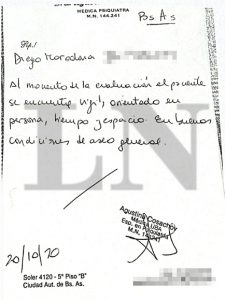 MEDICA PSIQUIATRA
M.N. 144.241
Bs. As
Rp/
Diego Maradona
Al momento de la evaluación el paciente
se encuentra vigil, orientado en
persona, tiempo y espacio. En buenas
condiciones de aseo general.
LN
Agustina Cosachov
Médica UBA
Esp. en Psiquiatría
M.N. 144.241
20/10/20
Soler 4120 - 5º Piso "B"
Ciudad Aut. de Bs. As.